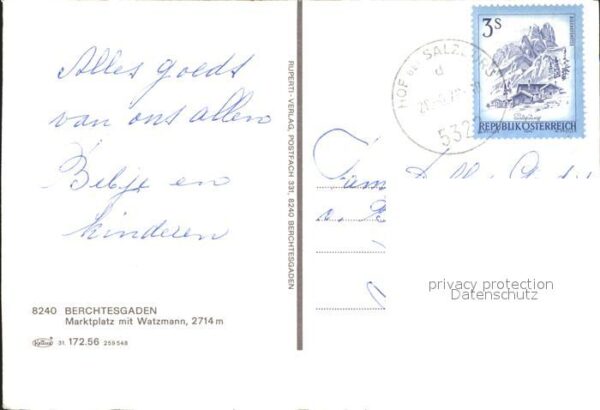 Alles goeds
van ons allen
Bebje en
kinderen
8240 BERCHTESGADEN
Marktplatz mit Watzmann, 2714 m
31. 172.56 259548
RUPERTI-VERLAG, POSTFACH 331, 8240 BERCHTESGADEN
HOF bei SALZBURG
d
532
3S
REPUBLIK ÖSTERREICH
Fam
privacy protection
Datenschutz